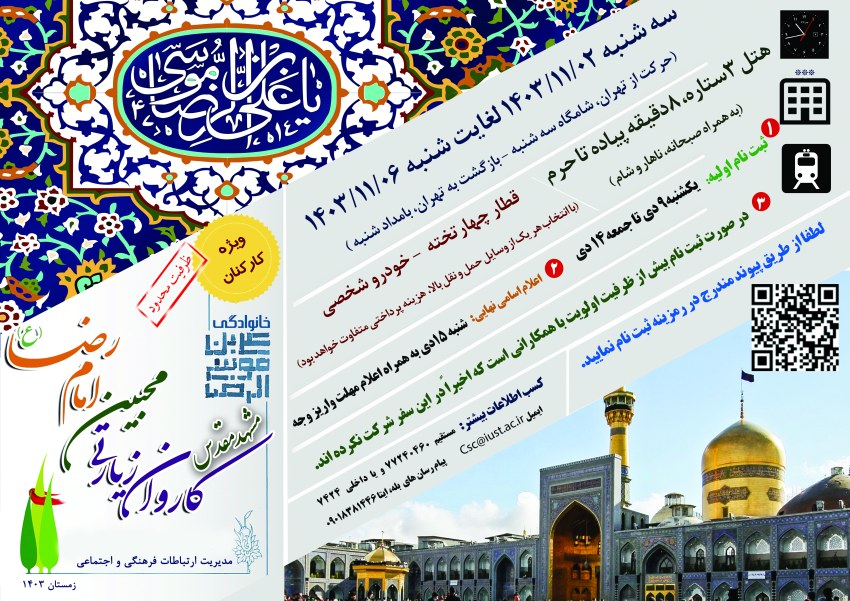 یا علی بن موسی الرضا
سه شنبه ۱۴۰۳/۱۱/۰۲ لغایت شنبه ۱۴۰۳/۱۱/۰۶
(حرکت از تهران، شامگاه سه شنبه - بازگشت به تهران، بامداد شنبه)
هتل ۳ ستاره، ۸ دقیقه پیاده تا حرم
(به همراه صبحانه، ناهار و شام)
قطار چهار تخته - خودرو شخصی
(با انتخاب هر یک از وسایل حمل و نقل بالا، هزینه پرداختی متفاوت خواهد بود)
۱ ثبت نام اولیه: یکشنبه ۹ دی تا جمعه ۱۴ دی
۲ اعلام اسامی نهایی: شنبه ۱۵ دی به همراه اعلام مهلت واریز وجه
۳ در صورت ثبت نام بیش از ظرفیت اولویت با همکارانی است که اخیراً در این سفر شرکت نکرده اند.
لطفا از طریق پیوند مندرج در رمزینه ثبت نام نمایید.
کسب اطلاعات بیشتر: مستقیم ۷۷۲۴۰۴۶۰ و یا داخلی ۷۴۲۴
ایمیل Csc@iust.ac.ir پیام رسان های بله، ایتا ۰۹۰۱۸۳۸۱۴۴۶
ویژه
کارکنان
ظرفیت محدود
خانوادگی
علی بن
موسی
الرضا
کاروان زیارتی
مشهد مقدس
محبین
امام رضا (ع)
مدیریت ارتباطات فرهنگی و اجتماعی
زمستان ۱۴۰۳